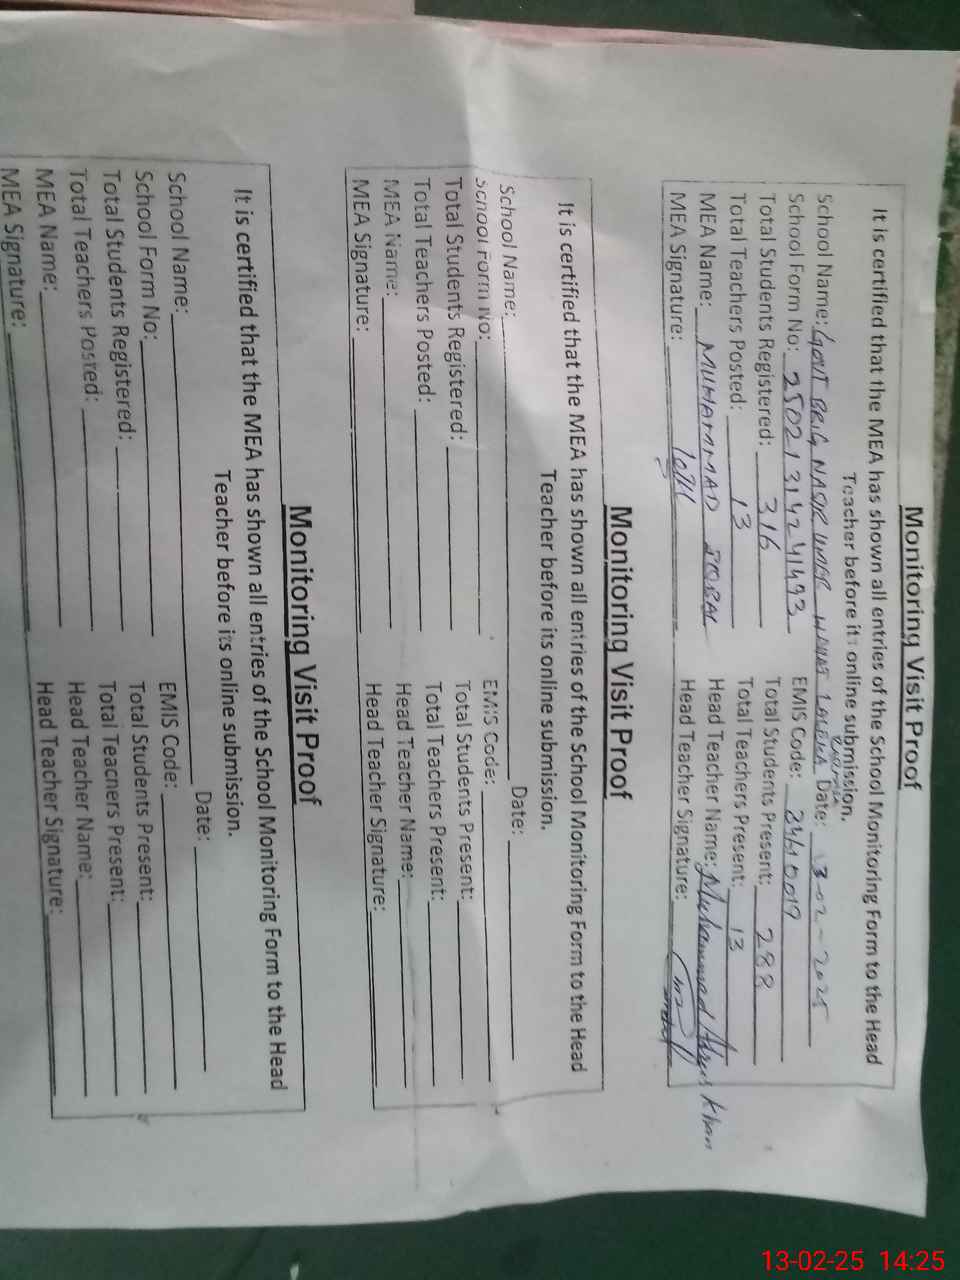 Monitoring Visit Proof
It is certified that the MEA has shown all entries of the School Monitoring Form to the Head
Teacher before its online submission.
School Name: GOVT BRIG NASIR Date: 13-02-2025
School Form No: EMIS Code:
Total Students Registered: 316 Total Students Present: 288
Total Teachers Posted: 13 Total Teachers Present: 13
MEA Name: MUHAMMAD IQBAL Head Teacher Name: Muhammad Khan
MEA Signature: Head Teacher Signature:
Monitoring Visit Proof
It is certified that the MEA has shown all entries of the School Monitoring Form to the Head
Teacher before its online submission.
School Name: Date:
School Form No: EMIS Code:
Total Students Registered: Total Students Present:
Total Teachers Posted: Total Teachers Present:
MEA Name: Head Teacher Name:
MEA Signature: Head Teacher Signature:
Monitoring Visit Proof
It is certified that the MEA has shown all entries of the School Monitoring Form to the Head
Teacher before its online submission.
School Name: Date:
School Form No: EMIS Code:
Total Students Registered: Total Students Present:
Total Teachers Posted: Total Teachers Present:
MEA Name: Head Teacher Name:
MEA Signature: Head Teacher Signature:
13-02-25 14:25